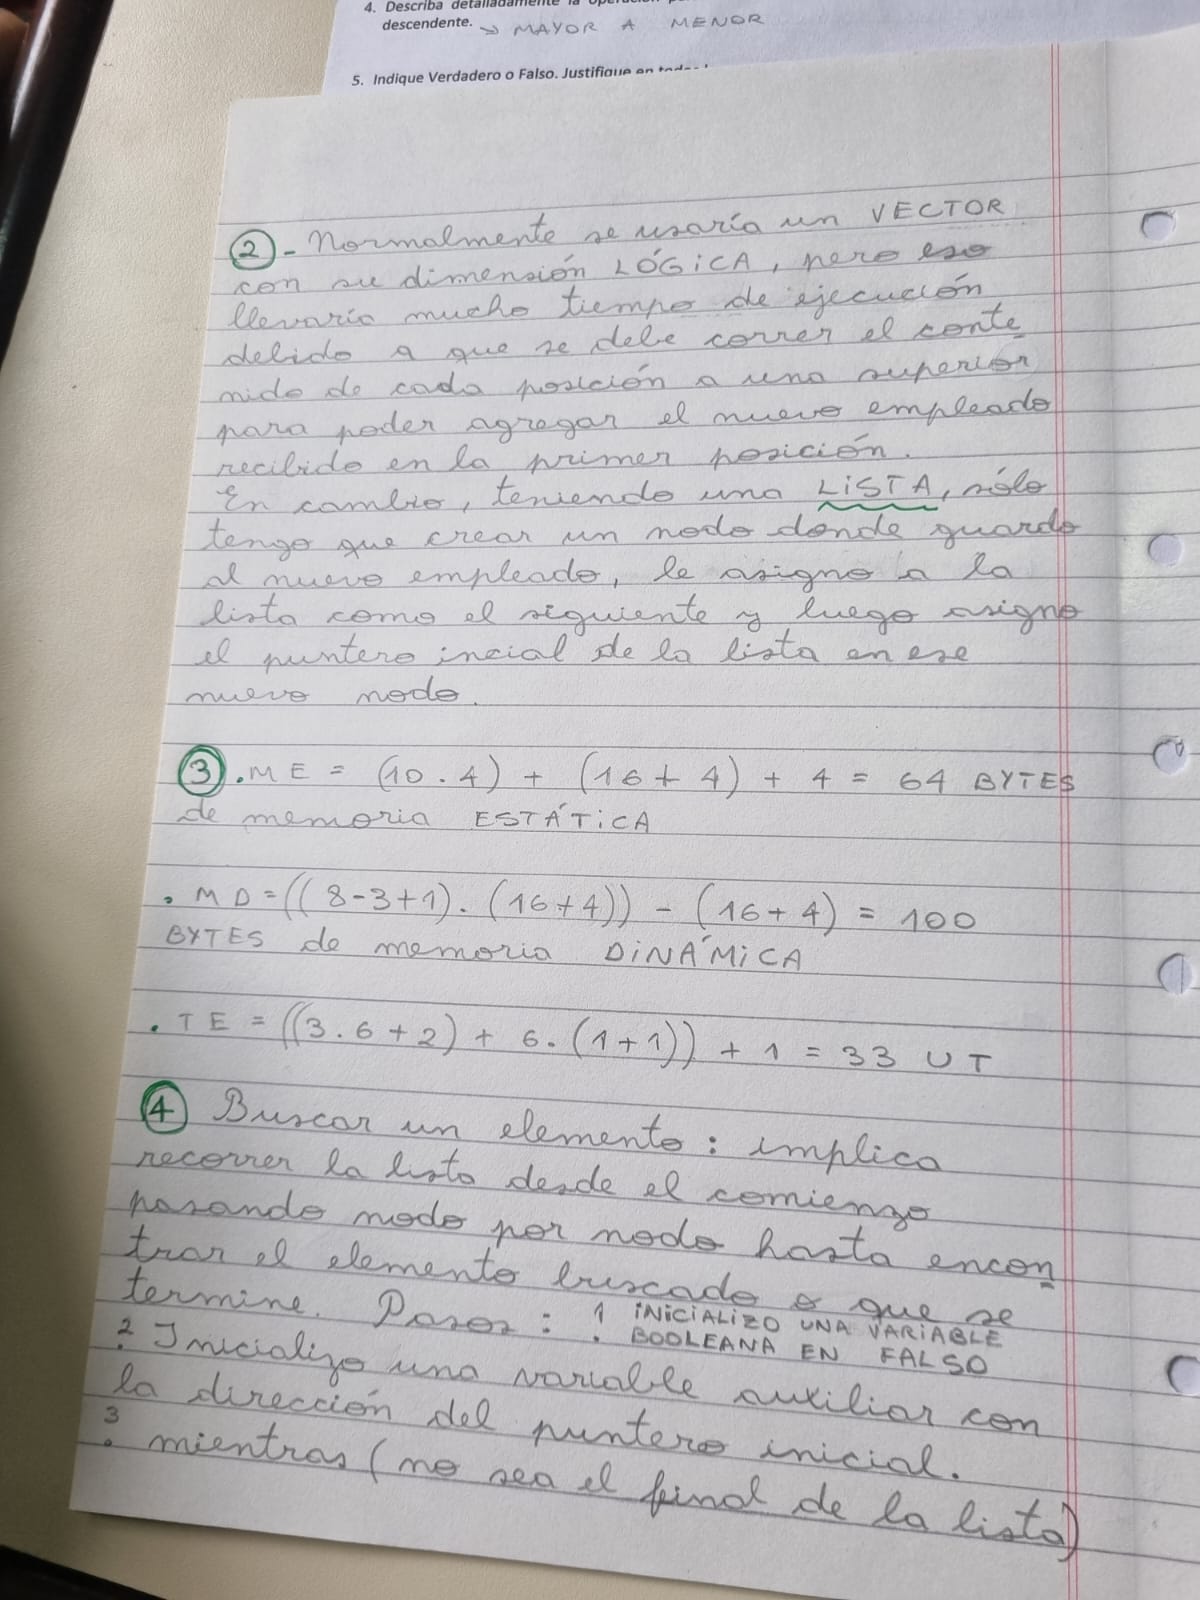 4. Describa detalladamente la operación
descendente. → MAYOR A MENOR
5. Indique Verdadero o Falso. Justifique en
2 - Normalmente se usaría un VECTOR
con su dimensión LÓGICA, pero eso
llevaría mucho tiempo de ejecución
debido a que se debe correr el conte
nido de cada posición a una superior
para poder agregar el nuevo empleado
recibido en la primer posición.
En cambio, teniendo una LISTA, sólo
tengo que crear un nodo donde guardo
al nuevo empleado, le asigno a la
lista como el siguiente y luego asigno
el puntero incial de la lista en ese
nuevo nodo.
3 . ME = (10 . 4) + (16 + 4) + 4 = 64 BYTES
de memoria ESTÁTICA
. MD = ((8-3+1) . (16+4)) - (16+4) = 100
BYTES de memoria DINÁMICA
. TE = ((3.6+2) + 6. (1+1)) + 1 = 33 UT
4 Buscar un elemento: implica
recorrer la lista desde el comienzo
pasando nodo por nodo hasta encon
trar el elemento buscado o que se
termine. Pasos: 1. INICIALIZO UNA VARIABLE
BOOLEANA EN FALSO
2. Inicializo una variable auxiliar con
la dirección del puntero inicial.
3. mientras (no sea el final de la lista)